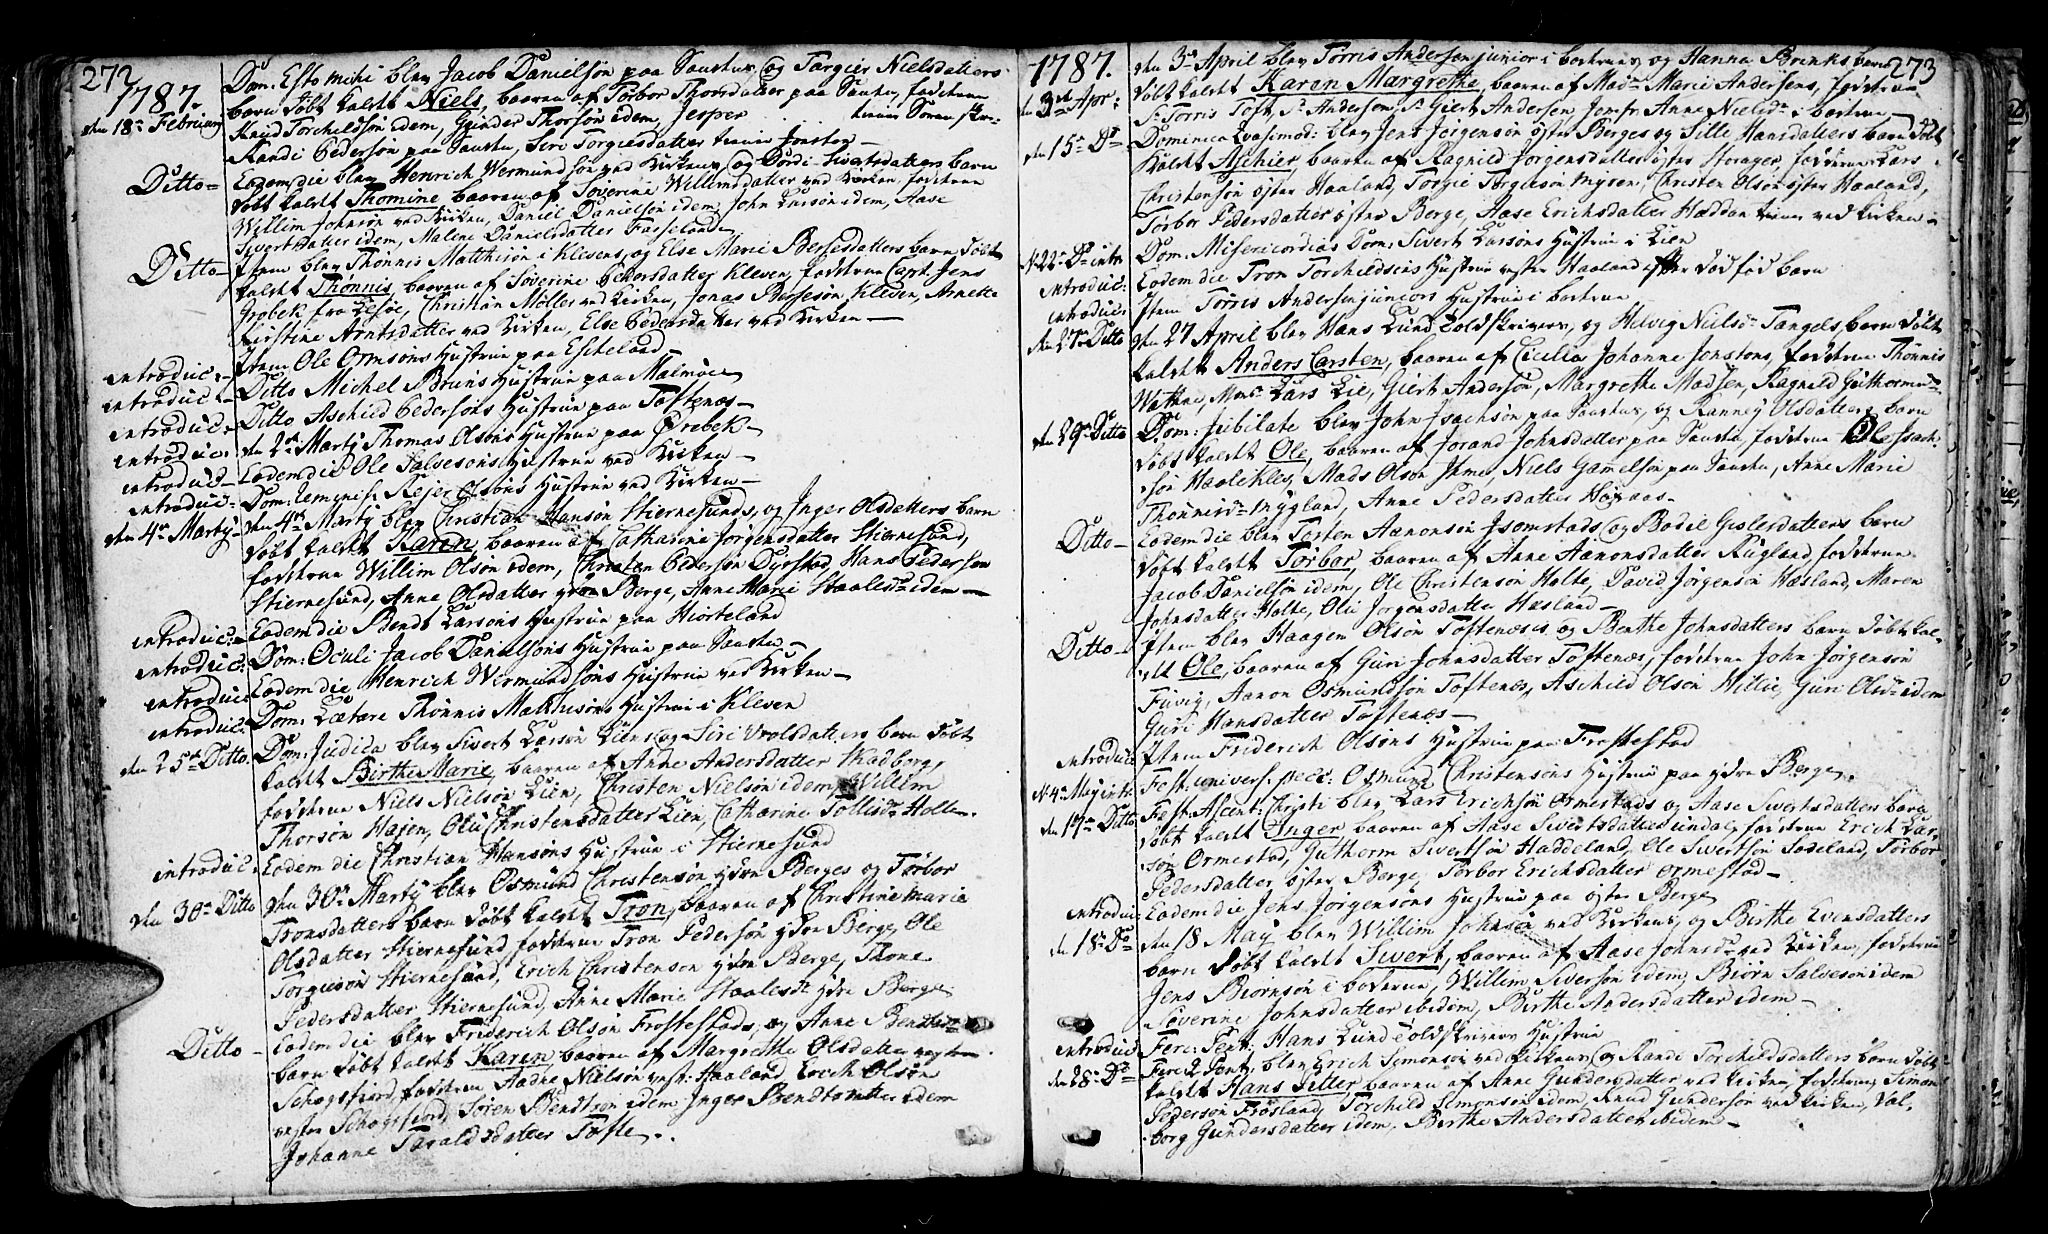 272
1787.
den 18de Februarij
Dom: Esto mihi blev Jacob Danielsøn paa Sanstøe og Targier Nielsdatters
barn døbt kaldt Niels, baaren af Torbor Thorsdatter paa Sanstøe, fadderne
Knud Torchildsøn idem, Gunder Thorsøn idem, Jesper tienner Søren
Randi Pedersdatter paa Sanstøe, Siri Torgiesdatter tienner Jonstog
Ditto Eodem die blev Henrich Wermundsøn ved Kirkens og Tordi Sivertsdatters barn
døbt kaldt Thomine baaren af Severine Willumsdatter ved Kirken, fadderne
Willim Johnsøn ved Kirken, Daniel Danielsøn idem, John Larsøn idem, Aase
Sivertsdatter idem, Malene Danielsdatter Fasseland
Ditto Item blev Thønnis Matthisøn i Klevens og Else Marie Bersesdatters barn døbt
kaldt Thønnis, baaren af Severine Pedersdatter Kleven, fadderne Capt. Jens
Grobek fra Lesøe, Christian Møller ved Kirken, Jonas Bersesøn Kleven, Arnette
Kirstine Arntsdatter ved Kirken, Else Pedersdatter ved Kirken
introduc: Item Ole Ormsøns Hustrue paa Eskeland
introduc: Ditto Michel Bruns Hustrue paa Malmøe
introduc: Ditto Aschild Pedersøns Hustrue paa Toftenæs
introduc: den 2den Martij Thomas Olsøns Hustrue paa Ørebek
introduc: Eodem die Ole Salvesøns Hustrue ved Kirken
introduc: Dom: Reminisc: Rejer Olsøns Hustrue ved Kirken
den 4de Martij den 4de Martij blev Christian Hansøn Stiernesunds, og Inger Olsdatters barn
døbt kaldt Karen, baaren af Catharine Jørgensdatter Stiernesund,
fadderne Willim Olsøn idem, Christen Pedersøn Dyrstad, Hans Pedersøn
Stiernesund, Anne Olsdatter ydre Berge, Anne Marie Staalesdr idem
introduc: Eodem die Bendt Larsøns Hustrue paa Hiorteland
introduc: Dom: Oculi Jacob Danielsøns Hustrue paa Sanstøe
introduc: Eodem die Henrich Wermundsøns Hustrue ved Kirken
introduc: Dom: Lætare Thønnis Mathisøns Hustrue i Kleven
den 25de Ditto. Dom: Judica blev Sivert Larsøn Liens og Siri Vrolsdatters barn døbt
kaldt Birthe Marie, baaren af Anne Andersdatter Skadberg,
fadderne Niels Nielsøn Lien, Christen Nielsøn idem, Willim
Thorsøn Højen, Oliv Christensdatter Lien, Catharine Tollisdr Holte.
introduc: Eodem die Christian Hansøns Hustrue i Stiernesund
den 30te Ditto den 30te Martij blev Osmund Christensøn ydre Berges og Torbor
Tronsdatters barn døbt kaldt Tron, baaren af Christine Maria
Olsdatter Stiernesund, fadderne Tron Pedersøn ydre Berge, Ole
Torgiesøn Stiernesund, Erich Christensøn ydre Berge, Thone
Pedersdatter Stiernesund, Anne Marie Staalesdr ydre Berge
Ditto Eodem die blev Friderich Olsøn Frostestads, og Anne Bendtsdr
barn døbt kaldt Karen, baaren af Margrethe Olsdatter vestre
Schogsfiord, fadderne Aadne Nielsøn vestre Haaland, Erich Olsøn
vestre Schogsfiord, Søren Bendtsøn idem, Inger Bendtsdatter idem
Johanne Taraldsdatter Tofte.
1787.
273
den 3de Apr: den 3de April blev Torris Andersøn junior i boderne, og Hanna Brinks barn
døbt kaldt Karen Margrethe, baaren af Made Marie Andersens, fadderne
Sr Torris Toft, Sr Andersøn, Sr Giert Andersen, Jomfr: Anne Nielsdr i boderne
den 15de Do Dominica Qvasimod: blev Jens Jørgensøn øster Berges og Sille Hansdatters barn døbt
kaldt Aschier, baaren af Ragnild Jørgensdatter øster Storager, fadderne Lars
Christensøn øster Haaland, Torgie Torgiesøn Myren, Christen Olsøn øster Haaland,
Torbor Pedersdatter øster Berge, Aase Erichsdatter Haddan tiener ved Kirken
d 22de Do intro Dom: Misericordias Dom: Sivert Larsøns Hustrue i Lien
introduc: Eodem die Tron Torchildsens Hustrue vester Haaland efter død fød barn
introduc: Item Torris Andersen juniors Hustrue i boderne
den 27de Ditto den 27 April blev Hans Lund Toldskrivers, og Helvig Nielsdr Tangels barn døbt
kaldt Anders Carsten, baaren af Cicilia Johanne Jonstons, fadderne Thønnis
Watne, Monsr Lars Lie, Giert Andersøn, Margrethe Madsen, Ragnild Guthormsdr
den 29de Ditto Dom: Jubilate blev John Isachsøn paa Sanstøe, og Ranney Olsdatters barn
døbt kaldt Ole, baaren af Jorand Johnsdatter paa Sanstøe, fadderne Ole Isach-
søn Haalehles, Mads Olsøn Imme, Niels Gamelsøn paa Sanstøe, Anne Marie
Thønnisdr Mygland, Anne Pedersdatter Høyaas
Ditto Eodem die blev Tosten Aanonsøn Jsomstads og Bodil Gislesdatters barn
døbt kaldt Torbor, baaren af Anne Aanonsdatter Rugland, fadderne
Jacob Danielsøn idem, Ole Christensøn Holte, David Jørgensøn Hæsland, Maren
Johnsdatter Holte, Oliv Jørgensdatter Hæsland
Ditto Item blev Haagen Olsøn Toftenæsis og Berthe Johnsdatters barn døbt kal-
dt Ole, baaren af Guri Johnsdatter Toftenæs, fadderne John Jørgensøn
Fuvig, Aanon Osmundsøn Toftenæs, Aschild Olsøn Hillie, Guri Olsdr idem
Guri Hansdatter Toftenæs
introduc: Item Friderich Olsøns Hustrue paa Frostestad
d 4de Maj intr: Fest. univers. prec: Osmund Christensøns Hustrue paa ydre Berge.
den 17de Ditto Fest. Ascent: Christi blev Lars Erichsøn Ormestads og Aase Sivertsdatters barn
døbt kaldt Inger, baaren af Aase Sivertsdatter undal, fadderne Erich Lar-
søn Ormestad, Guthorm Sivertsøn Haddeland, Ole Sivertsøn Sødeland, Torbor
Pedersdatter øster Berge, Torbor Erichsdatter Ormestad
introduc: Eodem die Jens Jørgensøns Hustrue paa øster Berge
den 18de Do den 18 Maij blev Willim Johnsøn ved Kirkens, og Birthe Evensdatters
barn døbt kaldt Sivert, baaren af Aase Jonsdr ved Kirken, fadderne
Jens Biørnsøn i boderne, Willim Siversøn idem, Biørn Salvesøn idem
Severine Johnsdatter ibidem, Birthe Andersdatter idem
introduc: Fer: Pent: Hans Lund Toldskrivers Hustrue
den 28de Do Fer: 2 Pent: blev Erich Simonsøn ved Kirkens og Randi Torchildsdatters barn døbt
kaldt Hans Petter, baaren af Anne Gundersdatter ved Kirken, fadderne Simon
Pedersøn Frøsland, Torchild Simonsøn idem, Knud Gundersøn ved Kirken, Val-
borg Gundersdatter idem, Birthe Andersdatter ibidem